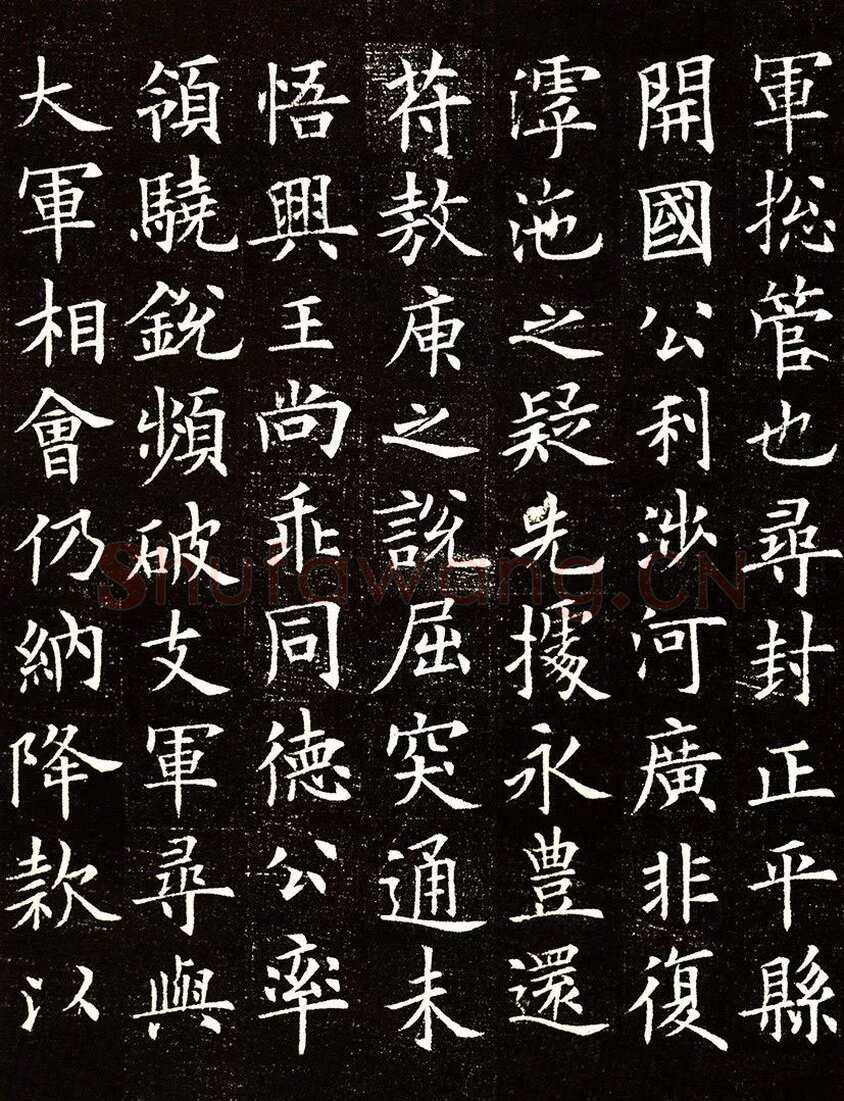 軍捴管也尋封正平縣
開國公利涉河廣非復
滹沲之疑先據永豊還
苻敖庾之說屈突通未
悟興王尚乖同德公率
領驍銳頻破支軍尋與
大軍相會仍納降款以
Shufawang.CN